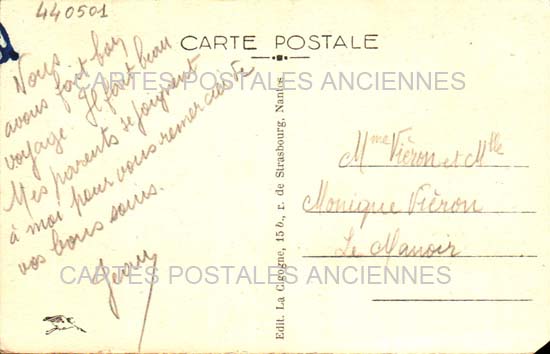 440501
CARTE POSTALE
Nous
avons fait bon
voyage. Il fait beau
Mes parents se joignent
à moi pour vous remercier de
vos bons soins.
Mme Viéron et Mlle
Monique Viéron
Le Manoir
Edit. La Cigogne, 15 b., r. de Strasbourg, Nantes
CARTES POSTALES ANCIENNES
CARTES POSTALES ANCIENNES